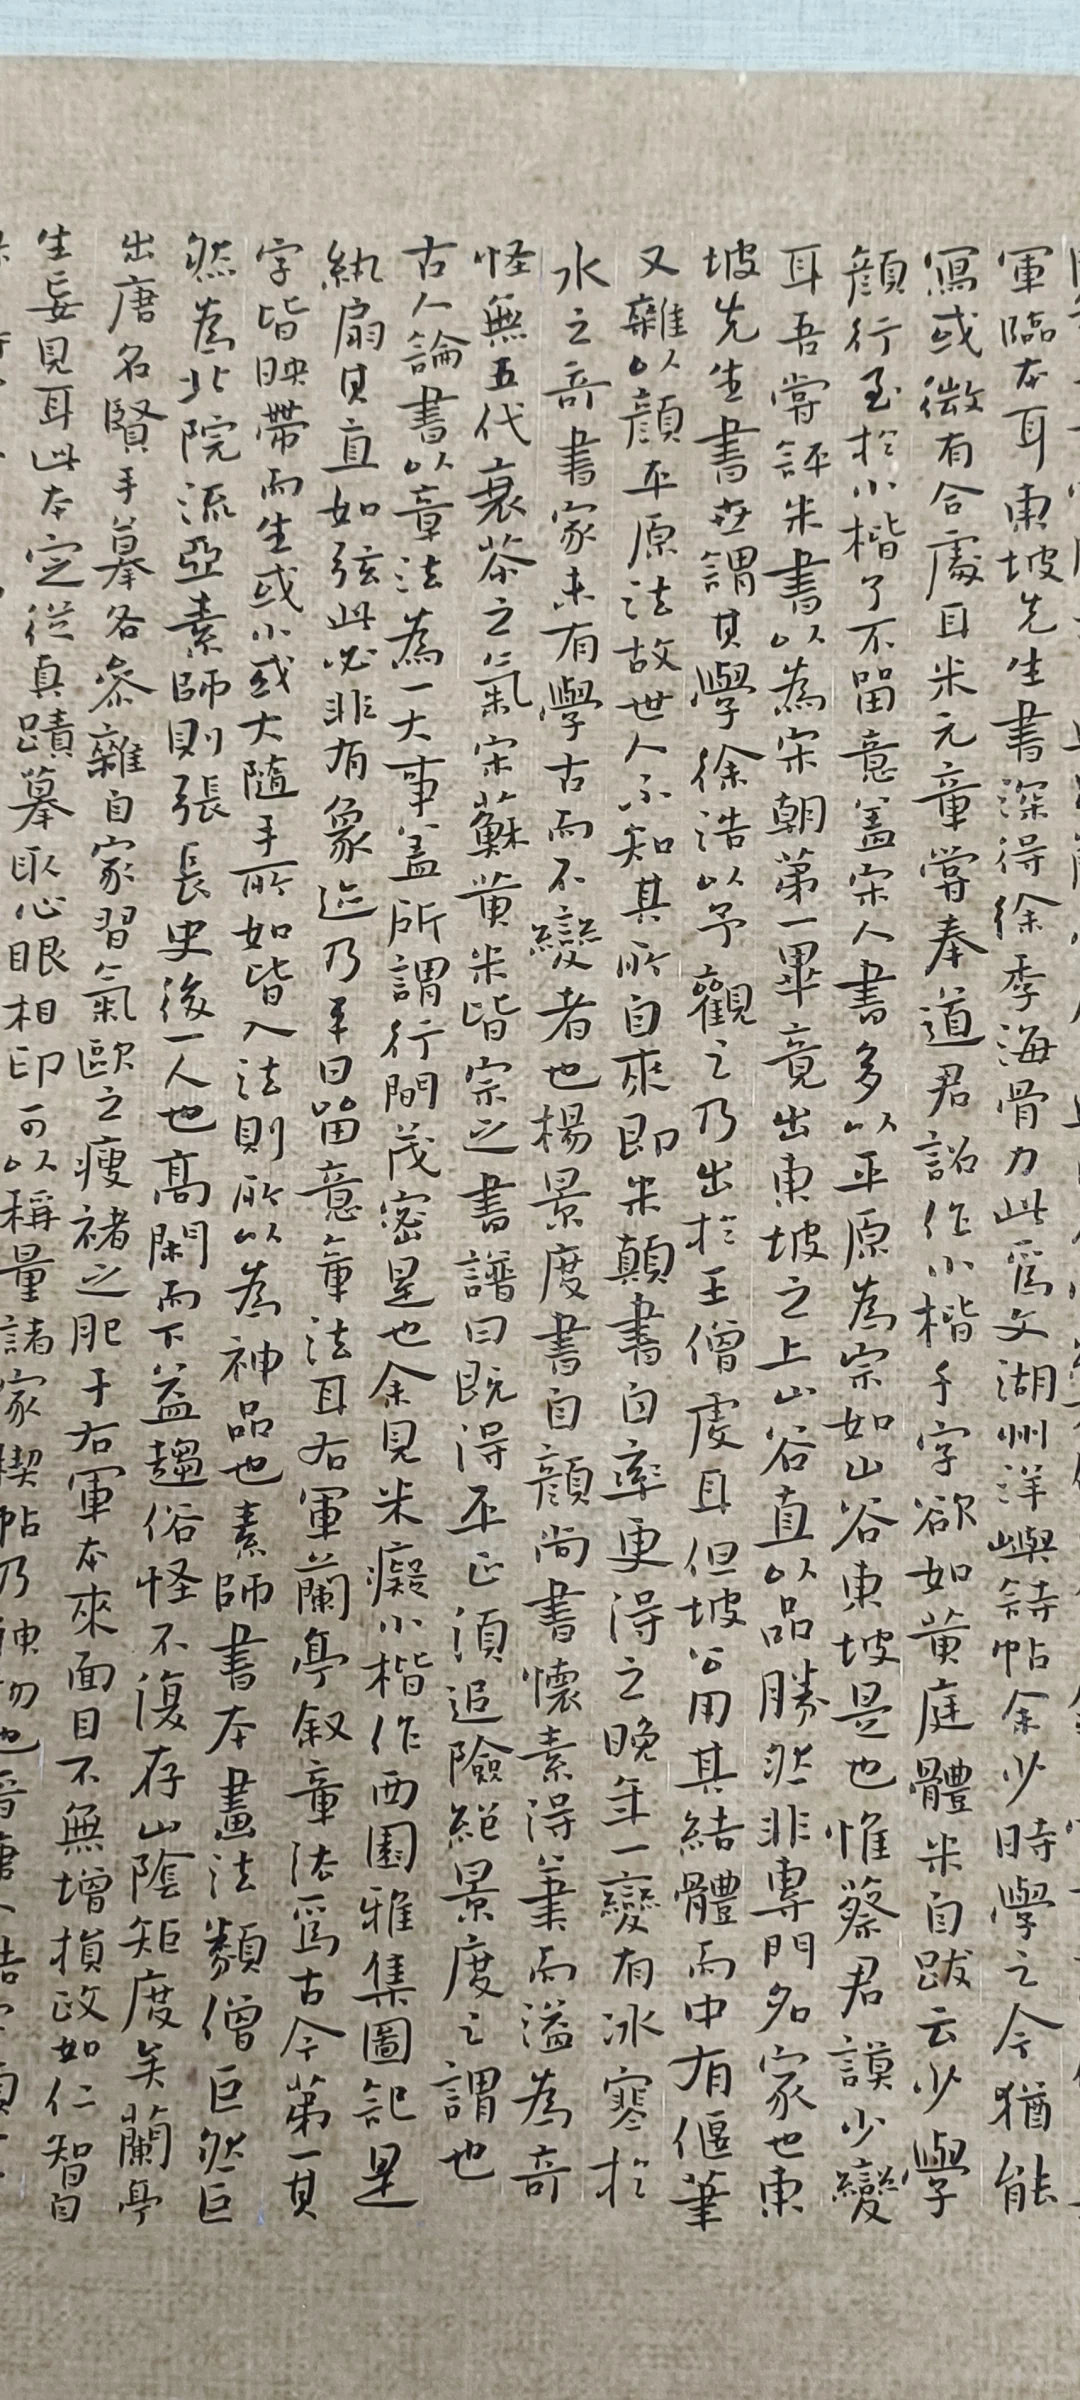 軍臨本耳東坡先生書深得徐季海骨力此為文湖州洋嶼詩帖余少時學之今猶能
寫或微有合處耳米元章嘗奉道君詔作小楷千字欲如黃庭體米自跋云少學
顏行至於小楷了不留意盖宋人書多以平原為宗如山谷東坡是也惟蔡君謨少變
耳吾嘗評米書以為宋朝第一畢竟出東坡之上山谷直以品勝然非專門名家也東
坡先生書世謂其學徐浩以予觀之乃出於王僧虔耳但坡公用其結體而中有偃筆
又雜以顏平原法故世人不知其所自來即米顛書自率更得之晚年一變有冰寒於
水之奇書家未有學古而不變者也楊景度書自顏尚書懷素得筆而溢為奇
怪無五代衰苶之氣宋蘇黃米皆宗之書譜曰既得平正須追險絕景度之謂也
古人論書以章法為一大事盖所謂行間茂密是也余見米癡小楷作西園雅集圖記是
紈扇其直如弦此必非有象迹乃平日留意章法耳右軍蘭亭叙章法為古今第一其
字皆映帶而生或小或大隨手所如皆入法則所以為神品也素師書本畫法類僧巨然巨
然為北院流亞素師則張長史後一人也高閑而下益趨俗怪不復存山陰矩度矣蘭亭
出唐名賢手摹各參雜自家習氣歐之瘦褚之肥于右軍本來面目不無增損政如仁智自
生妄見耳此本定從真蹟摹取心眼相印可以稱量諸家禊帖乃神物也